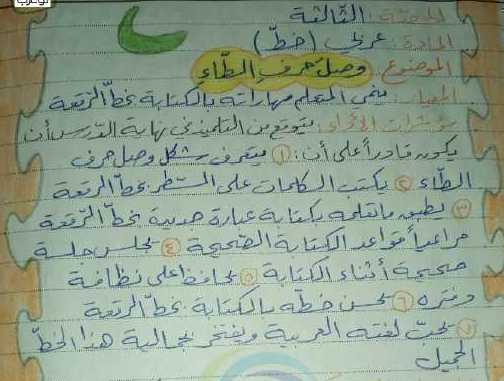 الحصة: الثالثة
المادة: عربي (خط)
الموضوع: وصل حرف الطاء
المعيار: ينمي المتعلم مهاراته بالكتابة بخط الرقعة
مؤشرات الأداء: يتوقع من التلميذ في نهاية الدرس أن
يكون قادراً على أن: ① يتعرف شكل وصل حرف
الطاء ② يكتب الكلمات على السطر بخط الرقعة
③ يطبق ما تعلمه بكتابة عبارة جديدة بخط الرقعة
مراعياً قواعد الكتابة الصحيحة ④ يجلس جلسة
صحيحة أثناء الكتابة ⑤ يحافظ على نظافة
دفتره ⑥ يحسن خطه بالكتابة بخط الرقعة
⑦ يحب لغته العربية ويفتخر بجمالية هذا الخط
الجميل